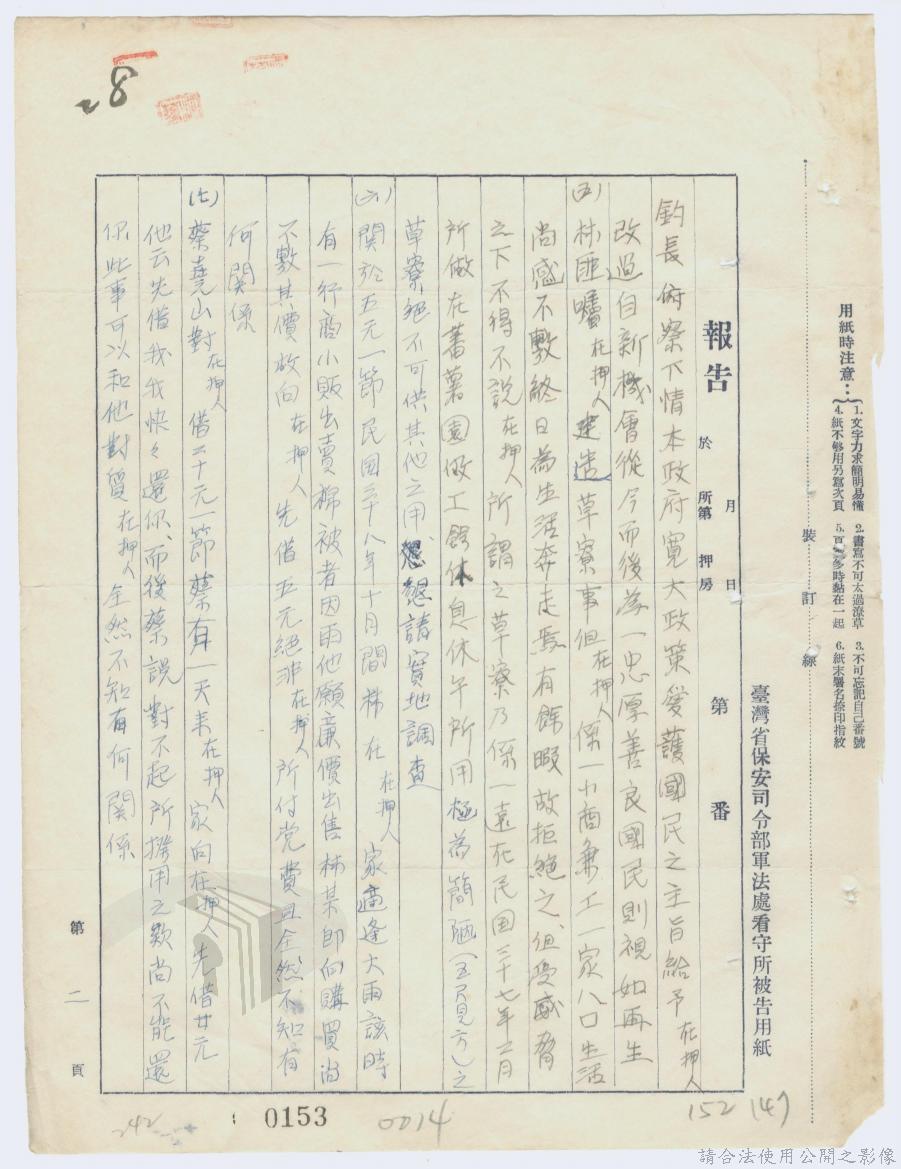 28
用紙時注意：
1. 文字力求簡明易懂 2. 書寫不可太過潦草 3. 不可忘記自己番號
4. 紙不够用另寫次頁 5. 頁多時黏在一起 6. 紙末署名捺印指紋
裝訂線
臺灣省保安司令部軍法處看守所被告用紙
報告 於 月 日 所第 押房 第 番
鈞長俯察下情本政府寬大政策愛護國民之主旨給予在押人
改過自新機會從今而後為一忠厚善良國民則視如再生
(五) 林匪囑在押人建造草寮事但在押人係一小商兼工一家八口生活
尚感不敷終日為生活奔走焉有餘暇故拒絕之、但受威脅
之下不得不說在押人所謂之草寮乃係一遠在民国三十七年二月
所做在蕃薯園做工餘休息休午所用極為簡陋(五尺見方)之
草寮絕不可供其他之用、懇請實地調查
(六) 関於五元一節民国三十八年十月間林在在押人家適逢大雨該時
有一行商小販出賣棉被者因雨他願廉價出售林某即向購買尚
不敷其價故向在押人先借五元絕非在押人所付党費且全然不知有
何関係
(七) 蔡堯山對在押人借二十元一節蔡有一天来在押人家向在押人先借廿元
他云先借我我快々還你、而後蔡說對不起所撥用之款尚不能還
你此事可以和他對質在押人全然不知有何関係
第二頁
242
0153
0014
152
147
請合法使用公開之影像